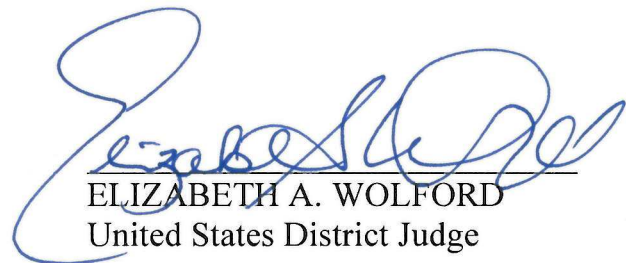 Elizabeth A. Wolford
ELIZABETH A. WOLFORD
United States District Judge